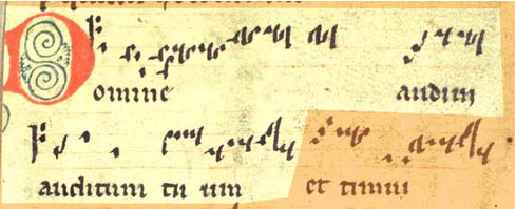 Domine audiui
auditum tuum et timui